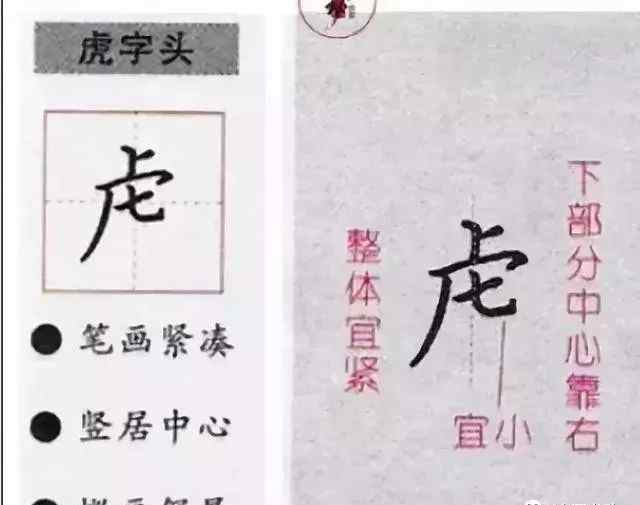 虎字头
虍
笔画紧凑
竖居中心
虍
整体宜紧
宜小
下部分中心靠右